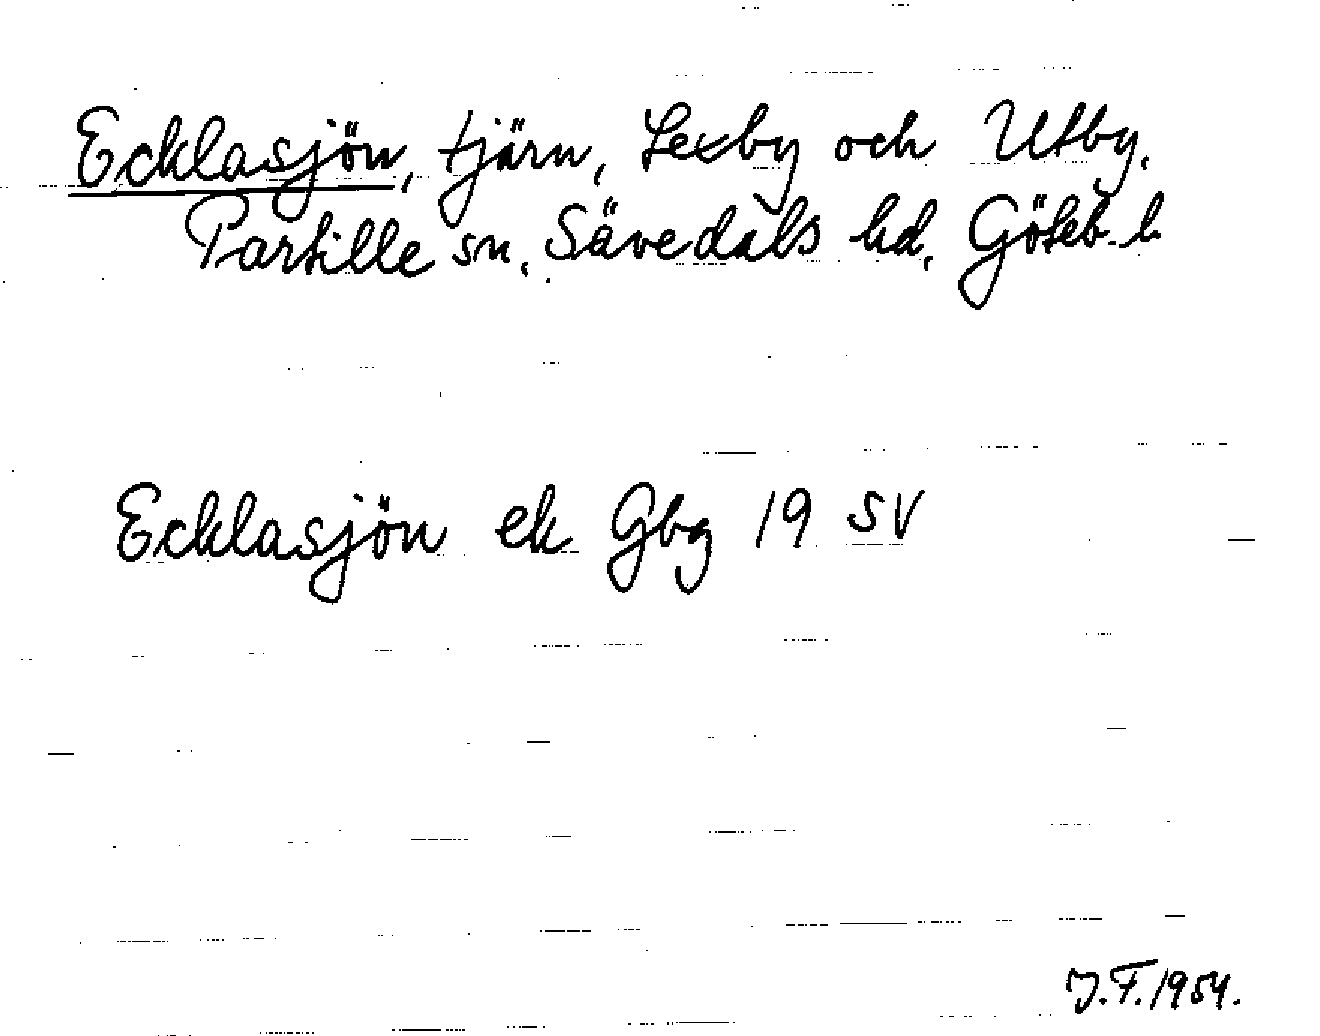 Ecklasjön, tjärn, Lexby och Utby,
Partille sn, Sävedals hd, Göteb. l.
Ecklasjön ek Gbg 19 SV
J.F. 1954.